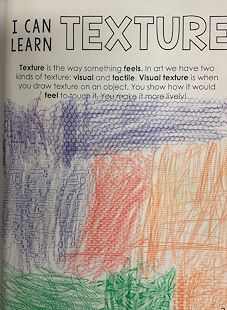 I CAN
LEARN TEXTURE
Texture is the way something feels. In art we have two
kinds of texture: visual and tactile. Visual texture is when
you draw texture on an object. You show how it would
feel to touch it. You make it more lively!